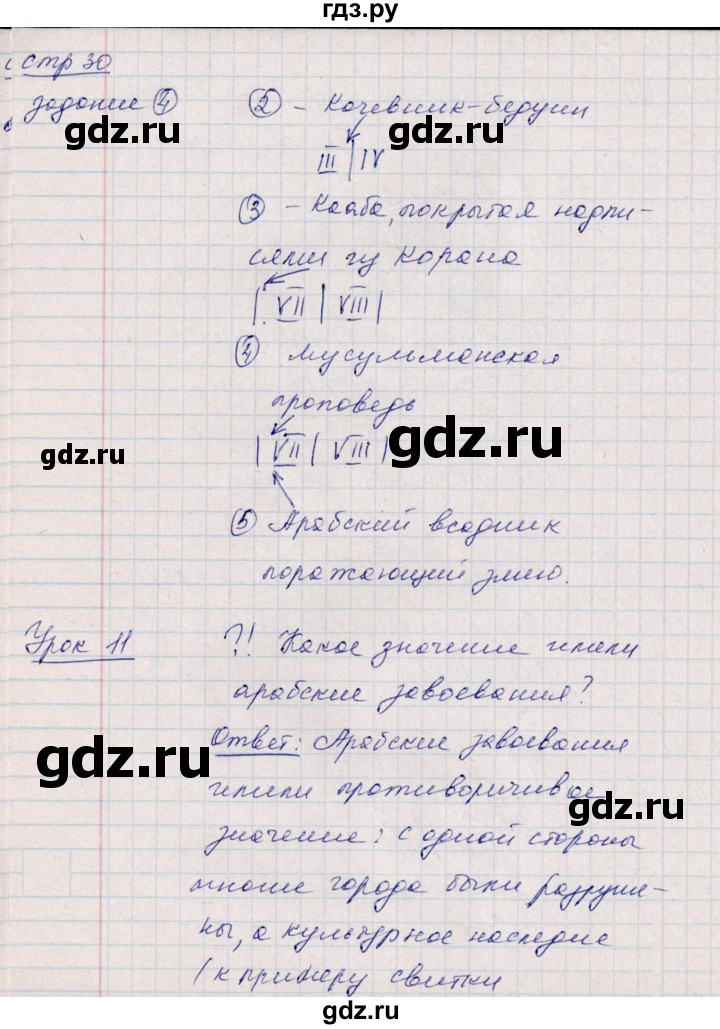 гдз.ру
стр 30
задание 4
2 - Кочевник-бедуин
III | IV
3 - Кааба, покрытая надпи-
сями из Корана
| VII | VIII |
4 мусульманская
проповедь
| VII | VIII |
5 Арабский всадник
поражающий змею.
Урок 11
?! Какое значение имели
арабские завоевания?
Ответ: Арабские завоевания
имели противоречивое
значение: с одной стороны
многие города были разруше-
ны, а культурное наследие
(к примеру свитки
gdz.ru
gdz.ru
gdz.ru
gdz.ru
gdz.ru
gdz.ru
gdz.ru
гдз.ру